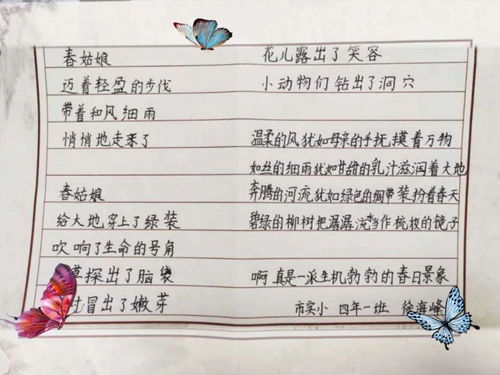 春姑娘
迈着轻盈的步伐
带着和风细雨
悄悄地走来了
春姑娘
给大地穿上了绿装
吹响了生命的号角
草探出了脑袋
冒出了嫩芽
花儿露出了笑容
小动物们钻出了洞穴
温柔的风犹如母亲的手抚摸着万物
如丝的细雨犹如甘甜的乳汁滋润着大地
奔腾的河流犹如绿色的绸带装扮着春天
碧绿的柳树把潺潺流水当作梳妆的镜子
啊真是一派生机勃勃的春日景象
市实小 四年一班 徐海峰